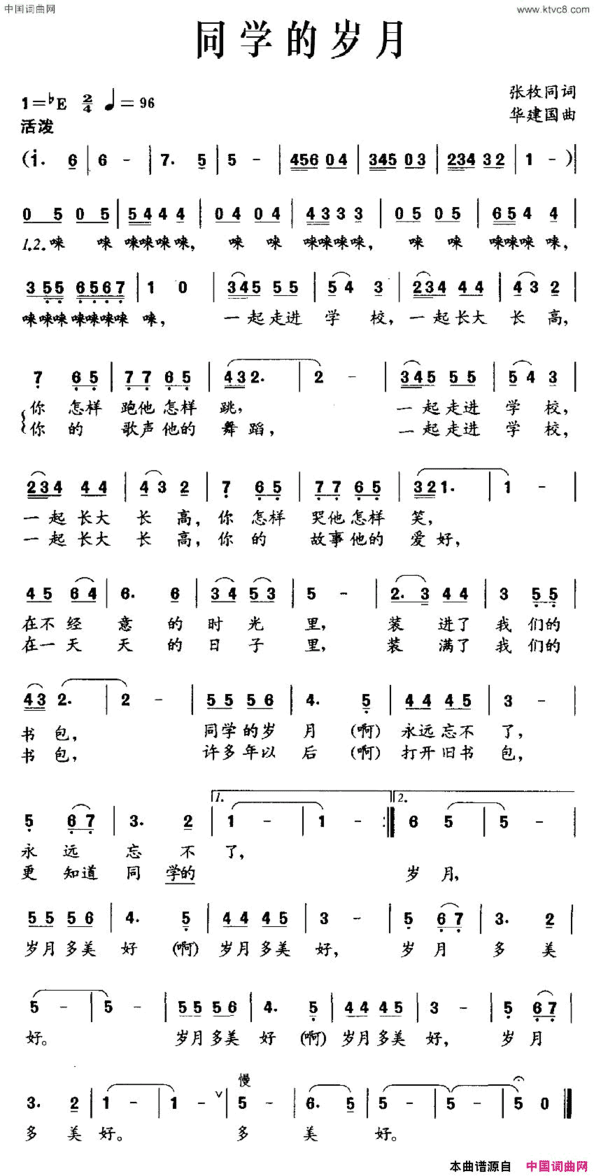 中国词曲网
www.ktvc8.com
同学的岁月
1=♭E 2/4 ♩=96
张枚同词
活泼
华建国曲
(i. 6 | 6 - | 7. 5 | 5 - | 456 04 | 345 03 | 234 32 | 1 - )
0 5 0 5 | 5444 | 04 04 | 4333 | 05 05 | 654 4 |
1,2.唻 唻 唻唻唻唻, 唻 唻 唻唻唻唻, 唻 唻 唻唻唻 唻,
355 6567 | 1 0 | 345 55 | 54 3 | 234 44 | 43 2 |
唻唻唻 唻唻唻唻 唻, 一起走进 学 校, 一起长大 长 高,
7 65 | 77 65 | 432. | 2 - | 345 55 | 54 3 |
你 怎样 跑他怎样 跳, 一起走进 学 校,
你 的 歌声他的 舞 蹈, 一起走进 学 校,
234 44 | 43 2 | 7 65 | 77 65 | 321. | 1 - |
一起长大 长 高, 你 怎样 哭他怎样 笑,
一起长大 长 高, 你 的 故事他的 爱 好,
45 64 | 6. 6 | 34 53 | 5 - | 2. 3 44 | 3 55 |
在不 经 意 的 时 光 里, 装 进了 我 们的
在一 天 天 的 日 子 里, 装 满了 我 们的
43 2. | 2 - | 55 56 | 4. 5 | 44 45 | 3 - |
书 包, 同学的岁 月 (啊) 永远忘不 了,
书 包, 许多年以 后 (啊) 打开旧书 包,
1. 2.
5 67 | 3. 2 | 1 - | 1 - :| 6 5 | 5 - |
永 远 忘 不 了,
更 知道 同 学的 岁 月,
55 56 | 4. 5 | 44 45 | 3 - | 5 67 | 3. 2 |
岁月多美 好 (啊) 岁月多美 好, 岁 月 多 美
5 - | 5 - | 55 56 | 4. 5 | 44 45 | 3 - | 5 67 |
好。 岁月多美 好 (啊) 岁月多美 好, 岁 月
慢
3. 2 | 1 - | 1 - ∨ | 5 - | 6. 5 | 5 - | 5 - | 5 0 ‖
多 美 好。 多 美 好。
本曲谱源自 中国词曲网